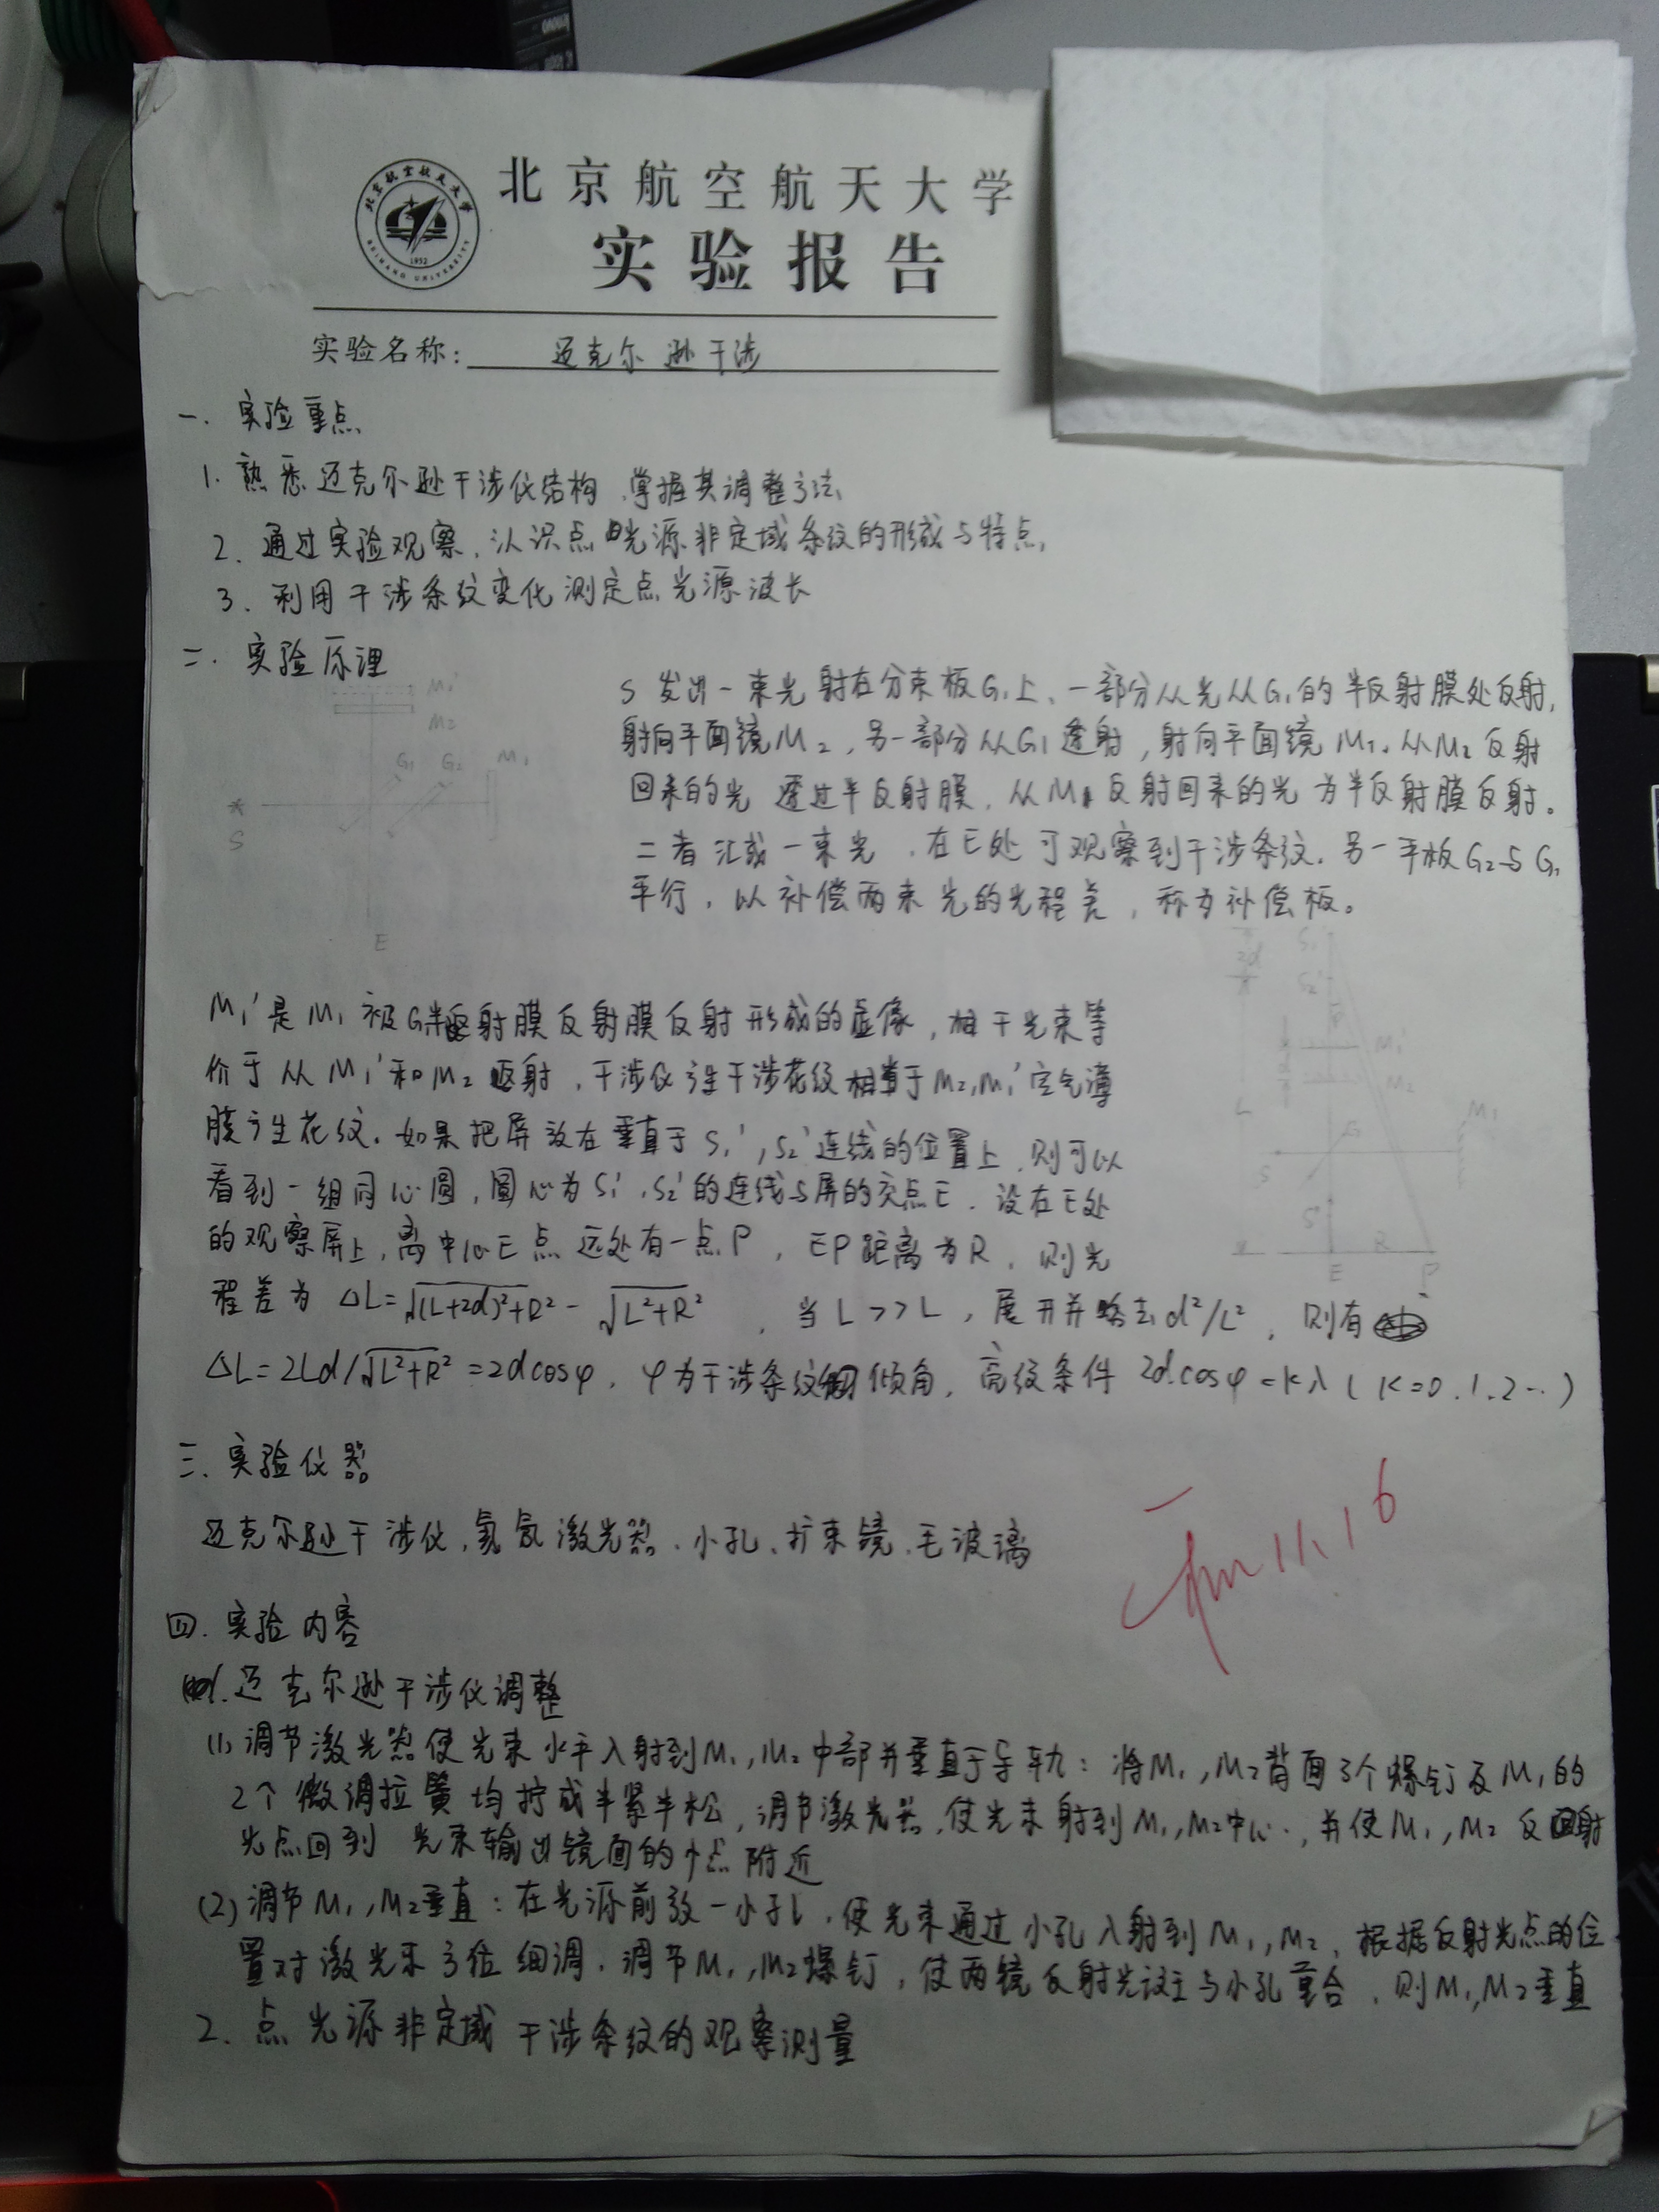 北京航空航天大学
实验报告
实验名称: 迈克尔逊干涉
一. 实验重点
1. 熟悉迈克尔逊干涉仪结构,掌握其调整方法
2. 通过实验观察,认识点光源非定域条纹的形成与特点,
3. 利用干涉条纹变化测定点光源波长
二. 实验原理
S发出一束光射在分束板G1上、一部分从光从G1的半反射膜处反射,
射向平面镜M2,另一部分从G1透射,射向平面镜M1.从M2反射
回来的光透过半反射膜,从M1反射回来的光为半反射膜反射。
二者汇成一束光,在E处可观察到干涉条纹.另一平板G2与G1
平行,以补偿两束光的光程差,称为补偿板。
M1'
M2
G1 G2 M1
S
E
M1'是M1被G1半反射膜反射膜反射形成的虚像,相干光束等
价于从M1'和M2反射,干涉仪产生干涉花纹相当于M2,M1'空气薄
膜产生花纹.如果把屏放在垂直于S1',S2'连线的位置上,则可以
看到一组同心圆,圆心为S1',S2'的连线与屏的交点E.设在E处
的观察屏上,离中心E点远处有一点P,EP距离为R,则光
程差为 ΔL=√(L+2d)²+R² - √L²+R² ,当L>>L,展开并略去d²/L²,则有
ΔL=2Ld/√L²+R² =2dcosφ,φ为干涉条纹倾角,亮纹条件 2dcosφ=kλ(K=0.1.2…)
S1'
2d
S2'
M1'
M2
L
M1
G
S
S'
R
E
P
三. 实验仪器
迈克尔逊干涉仪,氦氖激光器、小孔、扩束镜、毛玻璃
11.16
四. 实验内容
1. 迈克尔逊干涉仪调整
(1) 调节激光器使光束水平入射到M1,M2中部并垂直于导轨:将M1,M2背面3个螺钉及M1的
2个微调拉簧均拧成半紧半松,调节激光器,使光束射到M1,M2中心,并使M1,M2反射
光点回到光束输出镜面的小点附近
(2) 调节M1,M2垂直:在光源前放一小孔,使光束通过小孔入射到M1,M2、根据反射光点的位
置对激光束方位细调.调节M1,M2螺钉,使两镜反射光斑与小孔重合,则M1,M2垂直
2. 点光源非定域干涉条纹的观察测量